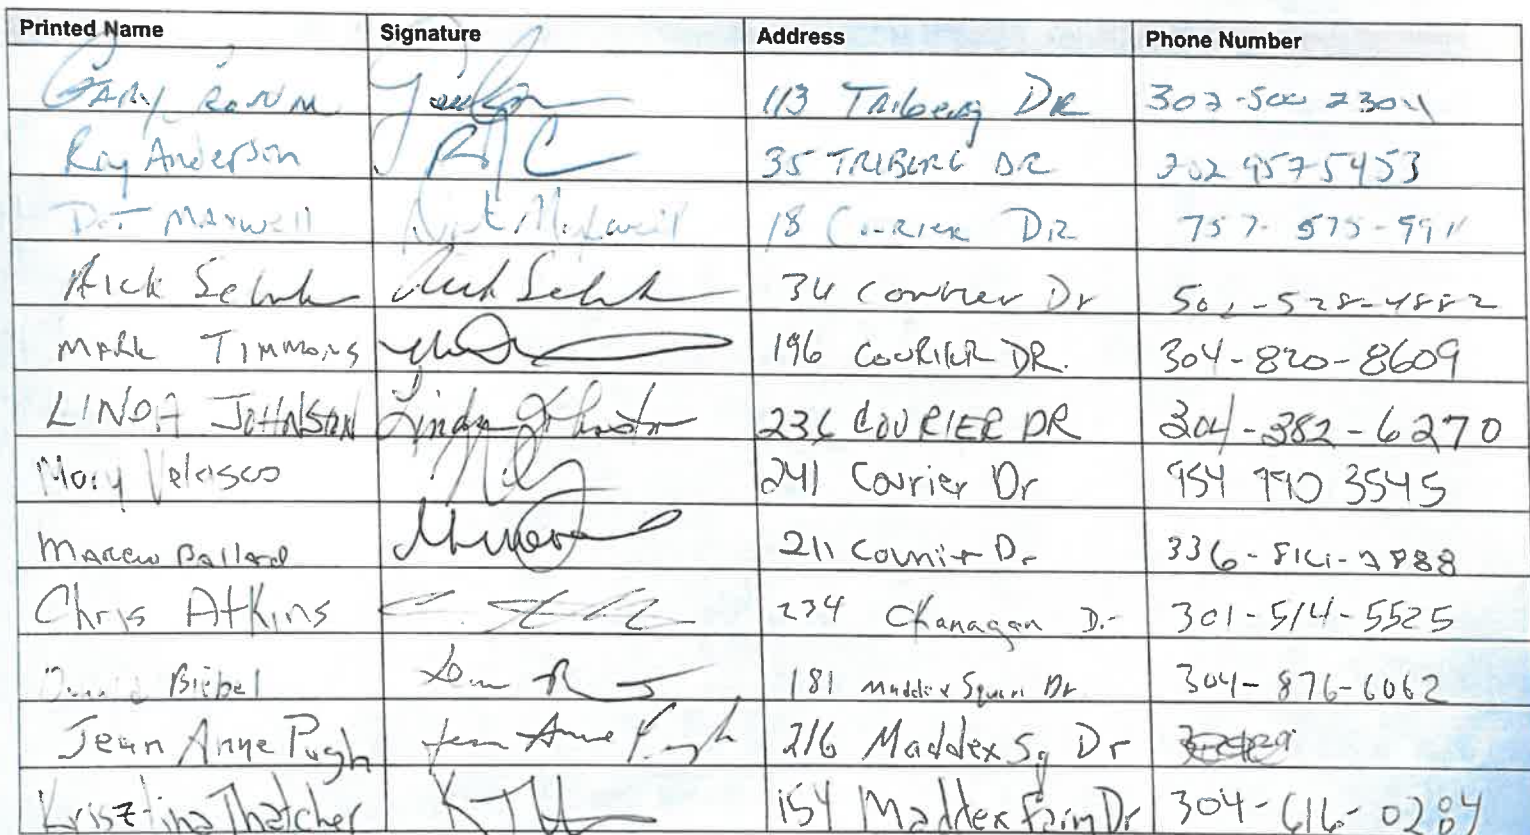 Printed Name Signature Address Phone Number
GARY 113 Triberg DR 302-500 2304
Ray Anderson 35 TRIBERG DR 302 957 5453
Dot Maxwell Dot Maxwell 18 Courier DR 757-575-991
Rick Rick 34 Courier Dr 502-528-4882
MARK TIMMONS 196 COURIER DR. 304-820-8609
LINDA JOHNSTON Linda Johnston 236 COURIER DR 304-382-6270
Mary Velasco 241 Courier Dr 954 990 3545
Marcus Ballard 211 Courier Dr 336-
Chris Atkins 234 Okanagan Dr 301-514-5525
Biebel 181 Maddex Square Dr 304-876-6062
Jean Anne Pugh Jean Anne Pugh 216 Maddex Sq Dr
Krisztina Thatcher 154 Maddex Farm Dr 304-616-0204